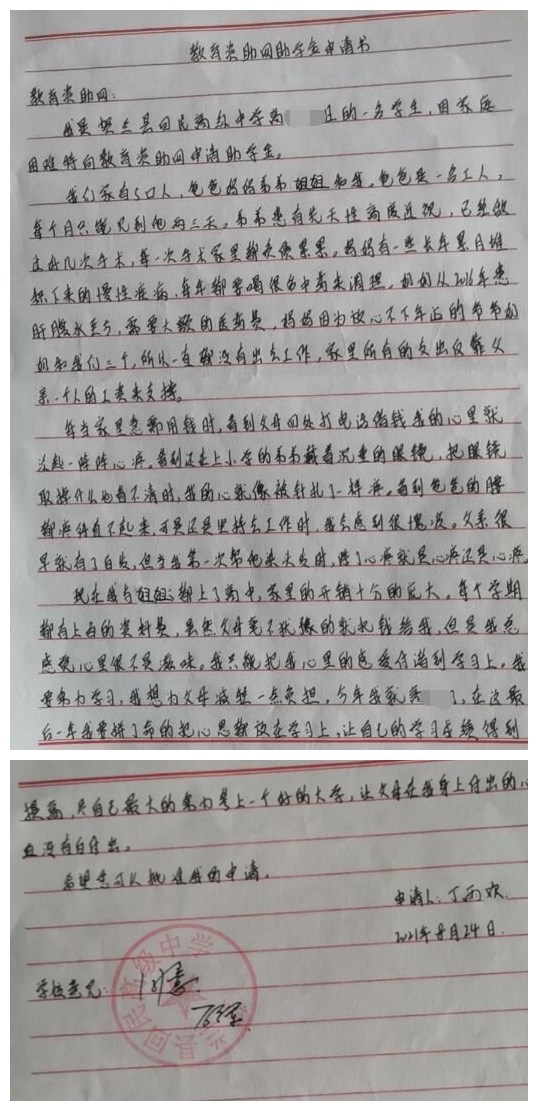 教育资助网助学金申请书
教育资助网：
我是贺兰县回民高级中学高 班的一名学生，因家庭
困难特向教育资助网申请助学金。
我们家有5口人，爸爸妈妈弟弟姐姐和我。爸爸是一名工人，
每个月只能见到他两三天。弟弟患有先天性高度近视，已经做
过好几次手术，每一次手术家里都负债累累。妈妈有一些长年累月堆
积下来的慢性疾病，每年都要喝很多中药来调理，奶奶从2016年患
肝腹水至今，需要大额的医药费，妈妈因为放心不下年迈的爷爷奶
奶和我们三个，所以一直都没有出去工作，家里所有的支出仅靠父
亲一个人的工资来支撑。
每当家里急需用钱时，看到父母四处打电话借钱我的心里就
泛起一阵阵心疼。看到还在上小学的弟弟戴着沉重的眼镜，把眼镜
取掉什么也看不清时，我的心就像被针扎了一样疼。看到爸爸的腰
都疼得直不起来，可是还是坚持去工作时，我会感到很愧疚。父亲很
早就有了白发，但当我第一次帮他染头发时，除了心疼就是心疼还是心疼。
现在我与姐姐都上了高中，家里的开销十分的庞大。每个学期
都有上百的资料费，虽然父母毫不犹豫的就把钱给我，但是我总
感觉心里很不是滋味。我只能把我心里的 付诸到学习上。我
要努力学习，我想为父母减轻一点负担，今年我就 了，在这最
后一年我要拼了命的把心思都放在学习上，让自己的学习成绩得到
提高，尽自己最大的努力考上一个好的大学，让父母在我身上付出的心
血没有白付出。
希望您可以批准我的申请。
申请人：丁雨欢
2021年8月24日
学校意见：
回民高级中学